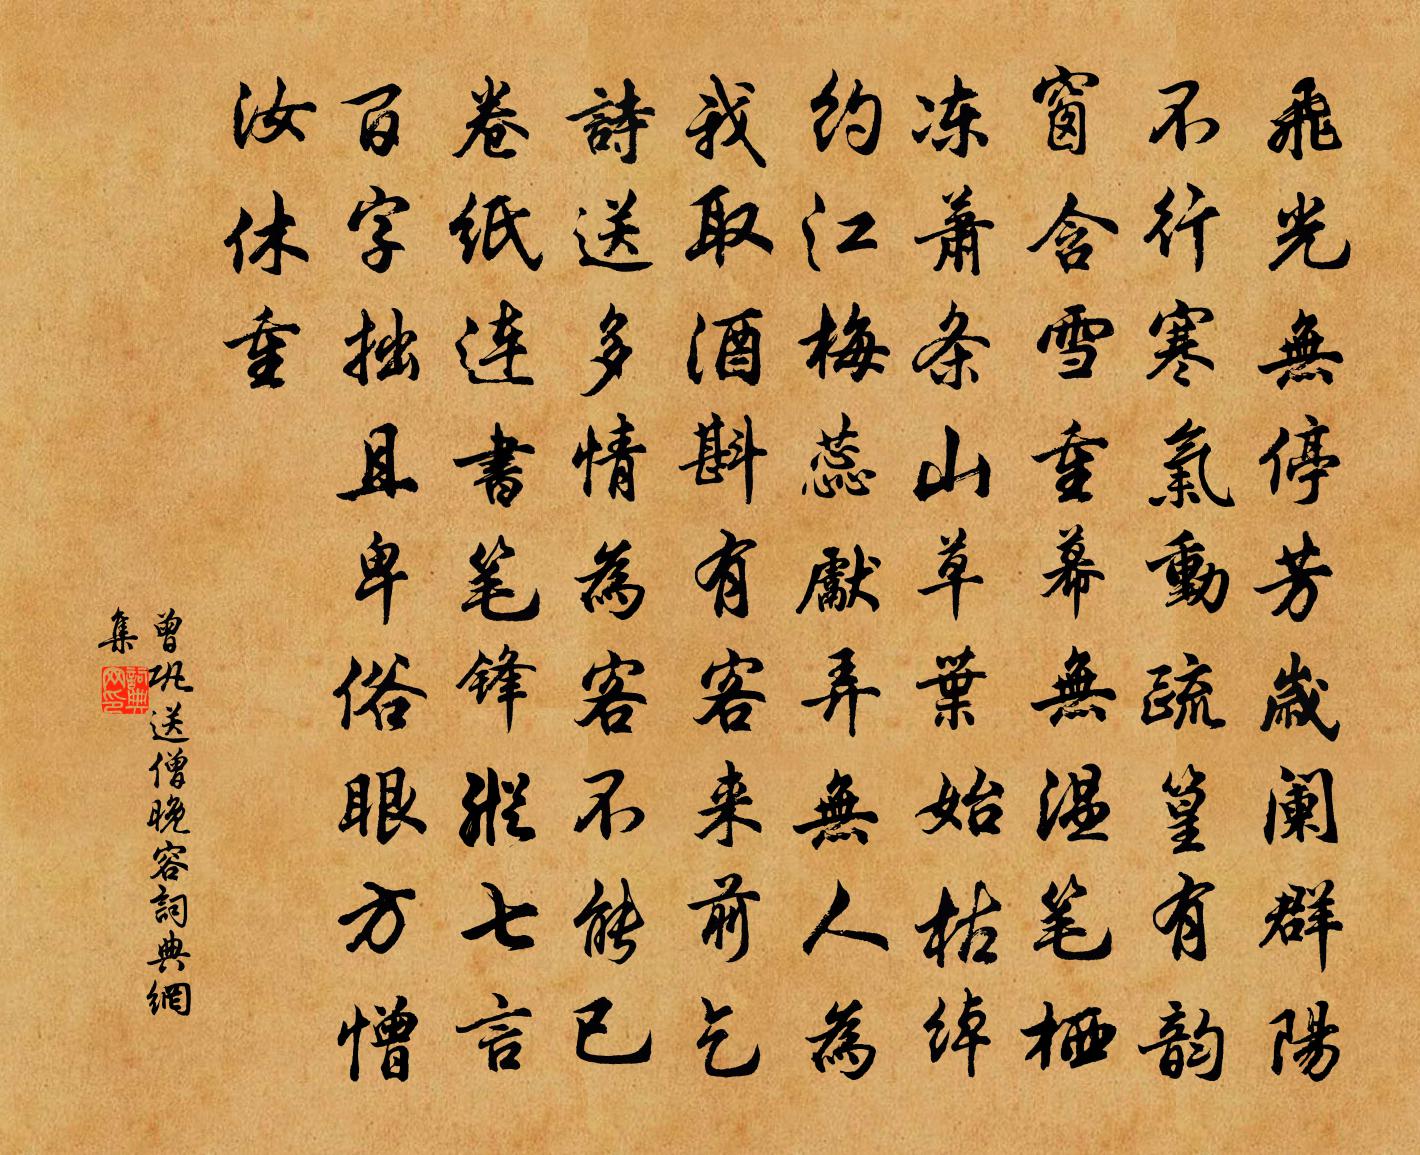 飛光無停芳歲闌群陽
不行寒氣動疏篁有韵
窗含雪重幕無温笔栖
冻萧条山草葉始枯绰
约江梅蕊獻弄無人為
我取酒斟有客来前乞
詩送多情為客不能已
卷纸连書笔锋縱七言
百字拙且卑俗眼方憎
汝休重
曾巩送僧晚容詞典網
集
詞典
网印